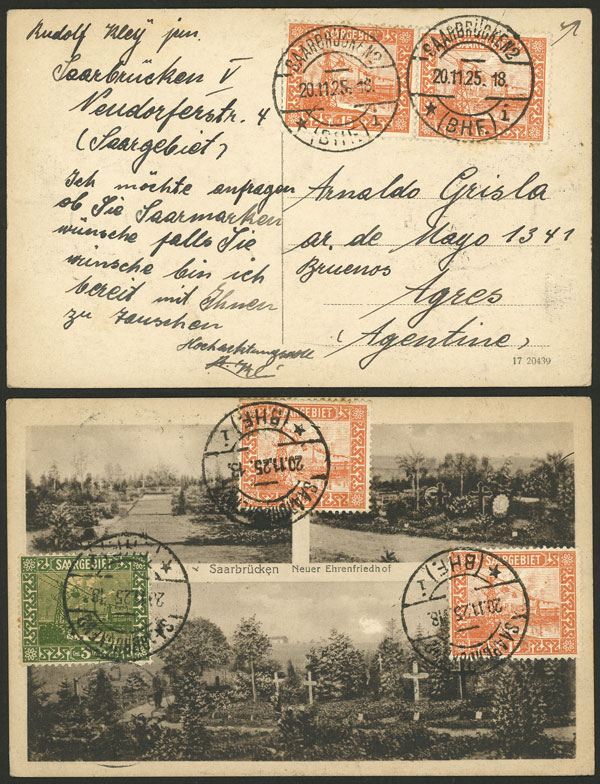 Rudolf Kleÿ jun.
Saarbrücken V
Neudorferstr. 4
(Saargebiet)
Ich möchte anfragen
ob Sie Saarmarken
wünsche falls Sie
wünsche bin ich
bereit mit Ihnen
zu tauschen
Hochachtungsvoll
SAARGEBIET
SAARBRÜCKEN 2
20.11.25. 18.
* (BHF.) i
SAARBRÜCKEN 2
20.11.25. 18.
* (BHF.) i
Arnaldo Grisla
av. de Mayo 1341
Bruenos
Agres
(Agentine)
17 20439
SAARGEBIET
(BHF.) i
20.11.25
Saarbrücken Neuer Ehrenfriedhof
SAARGEBIET
SAARGEBIET
(BHF.) i
20.11.25 18.